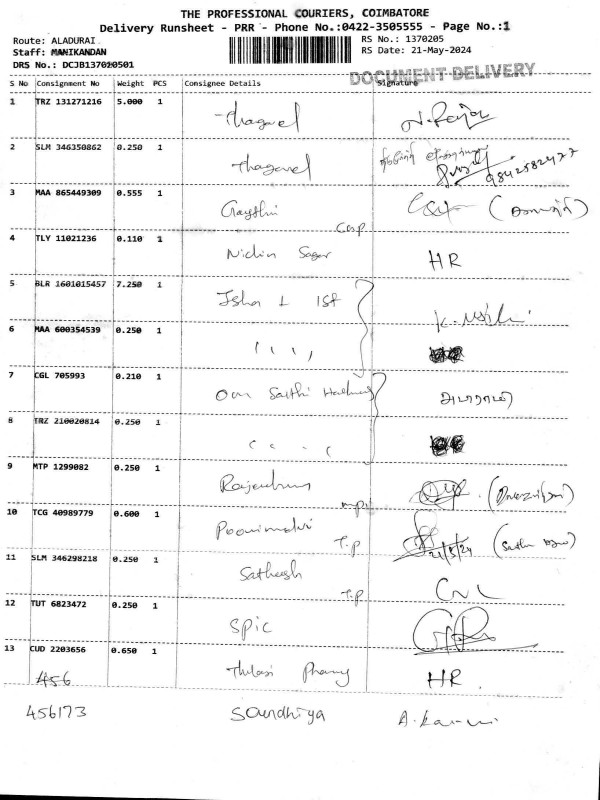 THE PROFESSIONAL COURIERS, COIMBATORE
Delivery Runsheet - PRR - Phone No.:0422-3505555 - Page No.:1
Route: ALADURAI RS No.: 1370205
Staff: MANIKANDAN RS Date: 21-May-2024
DRS No.: DCJB137020501
DOCUMENT DELIVERY
S No Consignment No Weight PCS Consignee Details Signature
1 TRZ 131271216 5.000 1 Thagavel
2 SLM 346350862 0.250 1 Thagavel 9842582477
3 MAA 865449309 0.555 1 Gaythri
4 TLY 11021236 0.110 1 Nichin Sagar HR
5 BLR 1601015457 7.250 1 Isha
6 MAA 600354539 0.250 1
7 CGL 705993 0.210 1 Om Sakthi
8 TRZ 210020814 0.250 1
9 MTP 1299082 0.250 1
10 TCG 40989779 0.600 1 T.P 21/5/24
11 SLM 346298218 0.250 1 Satheesh T.P
12 TUT 6823472 0.250 1 Spic
13 CUD 2203656 0.650 1 Thulasi HR
456
456173 Soundhiya